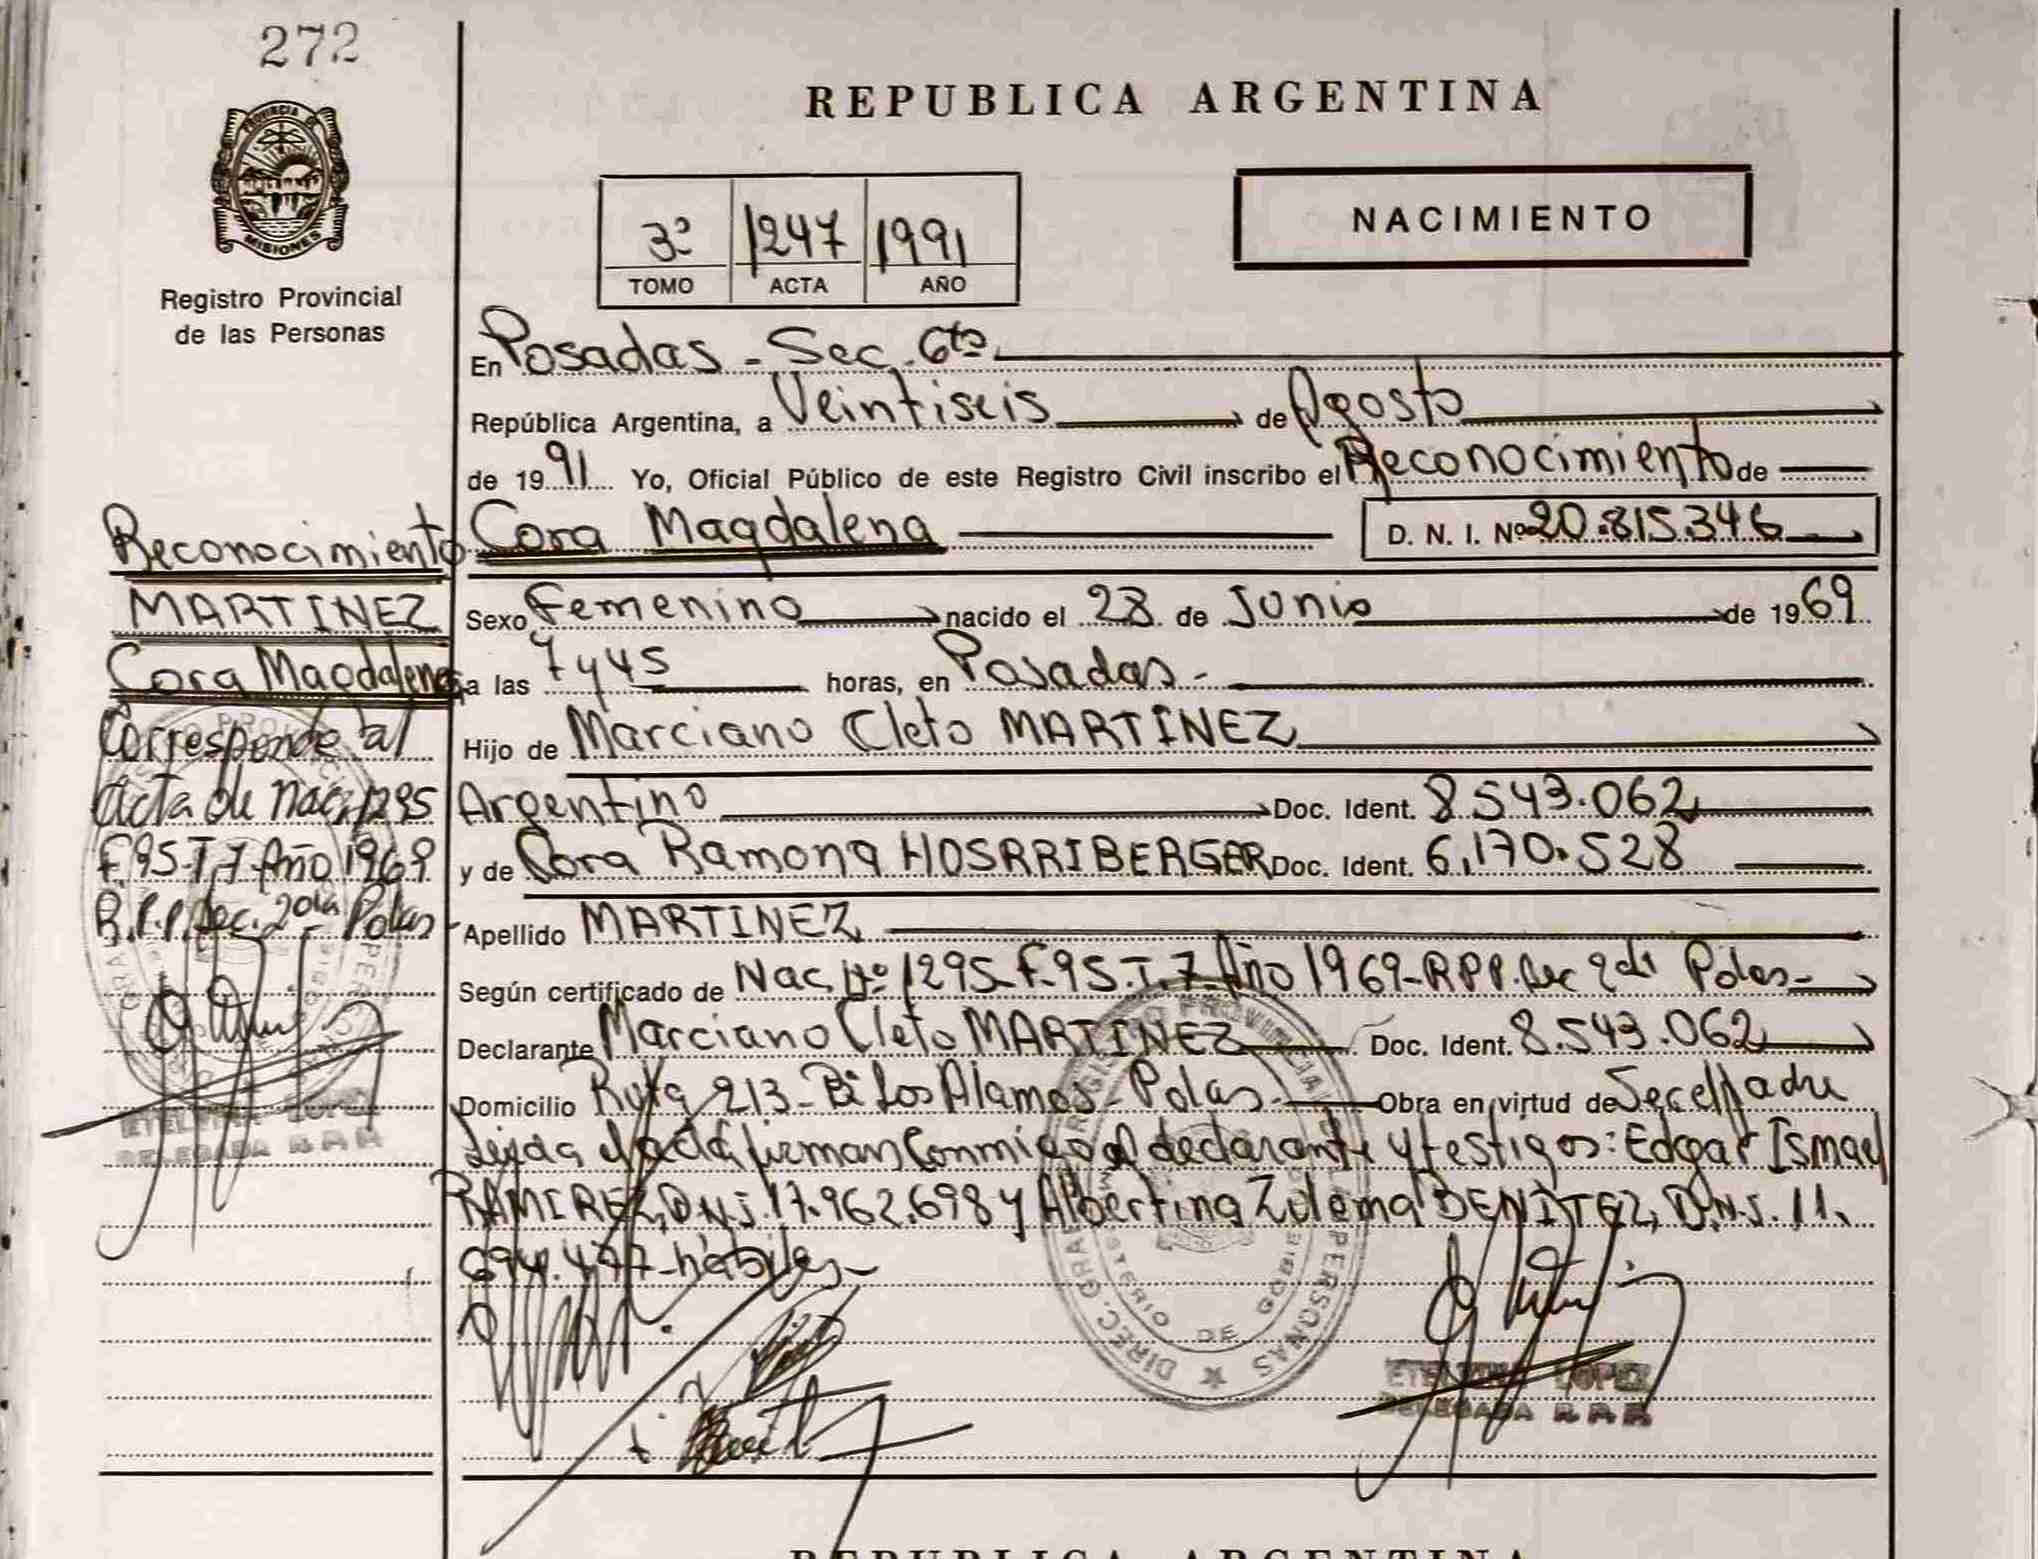 272
PROVINCIA DE
MISIONES
Registro Provincial
de las Personas
REPUBLICA ARGENTINA
3º 1247 1991
TOMO ACTA AÑO
NACIMIENTO
En Posadas - Sec. 6ta
República Argentina, a Veintiseis de Agosto
de 1991 Yo, Oficial Público de este Registro Civil inscribo el Reconocimiento de
Cora Magdalena D. N. I. Nº 20.815.346
Sexo Femenino nacido el 28 de Junio de 1969
a las 7 y 45 horas, en Posadas -
Hijo de Marciano Cleto MARTINEZ
Argentino Doc. Ident. 8.543.062
y de Cora Ramona HOSRRIBERGER Doc. Ident. 6.170.528
Apellido MARTINEZ
Según certificado de Nac. Nº 1295-F.95-T.7-Año 1969-RPP. Sec 2da Pdas-
Declarante Marciano Cleto MARTINEZ Doc. Ident. 8.543.062
Domicilio Ruta 213- Bº Los Alamos- Pdas- Obra en virtud de Ser el Padre
Leida el acta firman conmigo el declarante y testigos: Edgar Ismael
RAMIREZ, D.N.I. 17.962.698 y Albertina Zulema BENITEZ, D.N.I. 11.
694.477-hábiles-
Reconocimiento
MARTINEZ
Cora Magdalena
Corresponde al
Acta de Nac. 1295
F.95-T.7-Año 1969
R.P.P. Sec. 2da Pdas-
ETELVINA LOPEZ
DELEGADA
REGISTRO PROVINCIAL
PERSONAS
DIREC. GRAL
MINISTERIO DE GOBIERNO
ETELVINA LOPEZ
DELEGADA
REPUBLICA ARGENTINA